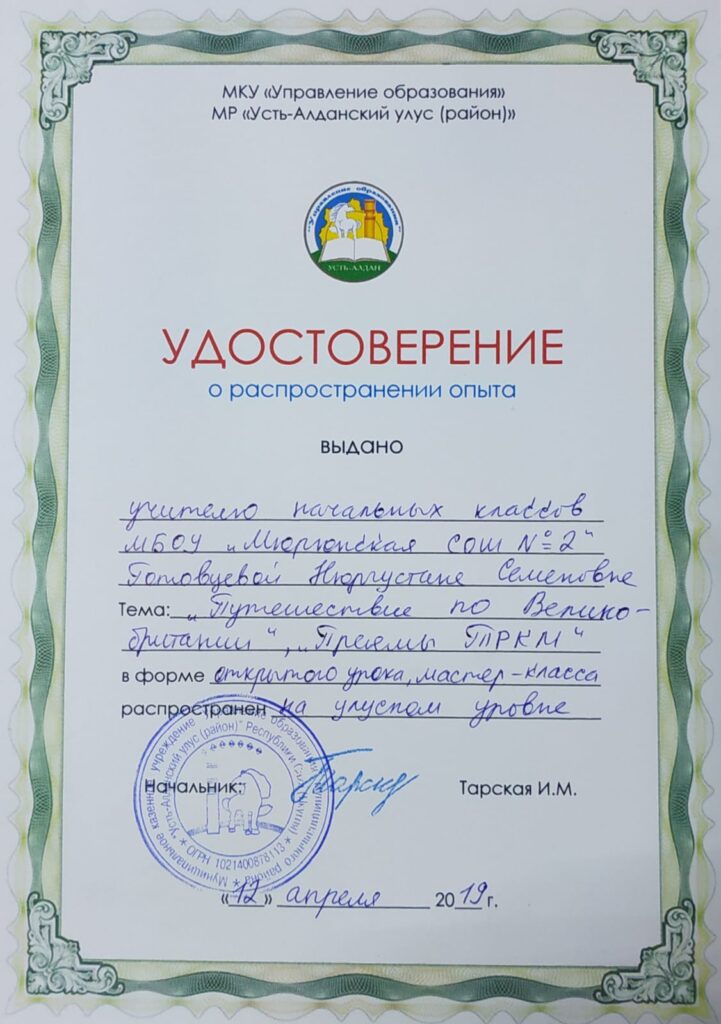 МКУ «Управление образования»
МР «Усть-Алданский улус (район)»
"Управление образования"
УСТЬ-АЛДАН
УДОСТОВЕРЕНИЕ
о распространении опыта
выдано
учителю начальных классов
МБОУ „Мюрюнская СОШ №2"
Готовцевой Нюргустане Семеновне
Тема: „Путешествие по Велико-
британии", „Приемы ТРКМ"
в форме открытого урока, мастер-класса
распространен на улусном уровне
Начальник:
Тарская И.М.
Муниципальное казенное учреждение "Управление образования муниципального района
"Усть-Алданский улус (район)" Республики Саха (Якутия)
ОГРН 1021400878113
«12» апреля 2019 г.